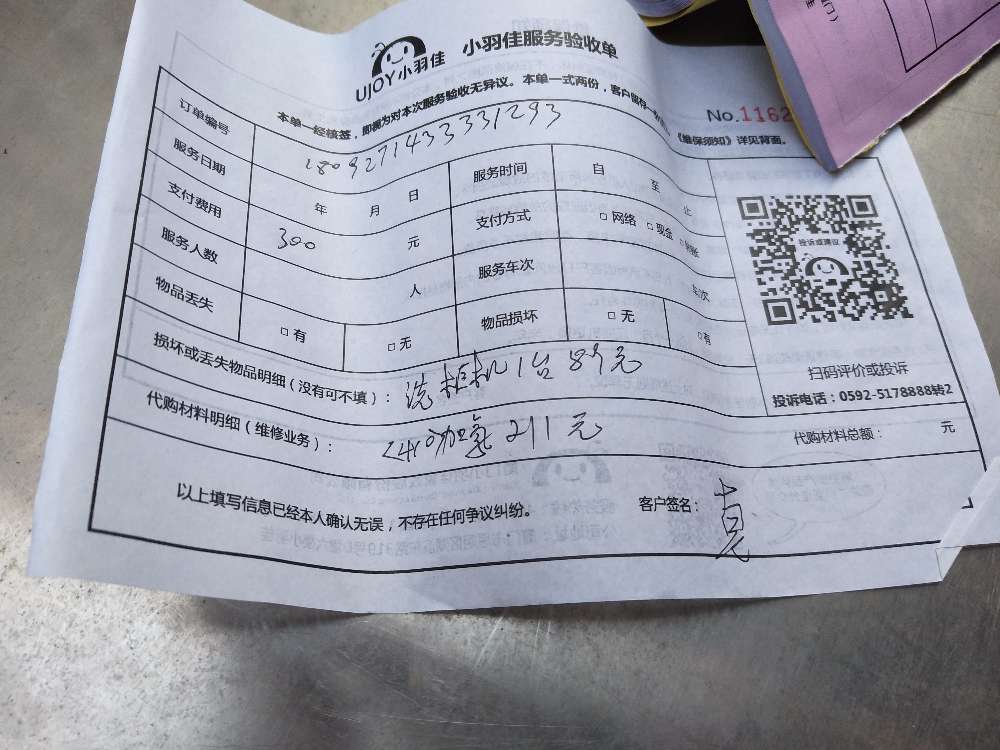 UJOY小羽佳 小羽佳服务验收单
本单一经核签，即视为对本次服务验收无异议。本单一式两份，客户留存一
No.1162
《维保须知》详见背面。
订单编号 1809271433331293
服务日期 年 月 日 服务时间 自 至 止
支付费用 300 元 支付方式 □ 网络 □ 现金 □
服务人数 人 服务车次 车次
物品丢失 □ 有 □ 无 物品损坏 □ 无 □ 有
损坏或丢失物品明细（没有可不填）： 洗 柜机 1台 89元
代购材料明细（维修业务）： 加氟 211元
代购材料总额： 元
以上填写信息已经本人确认无误，不存在任何争议纠纷。 客户签名：
投诉或建议
扫码评价或投诉
投诉电话：0592-5178888转2